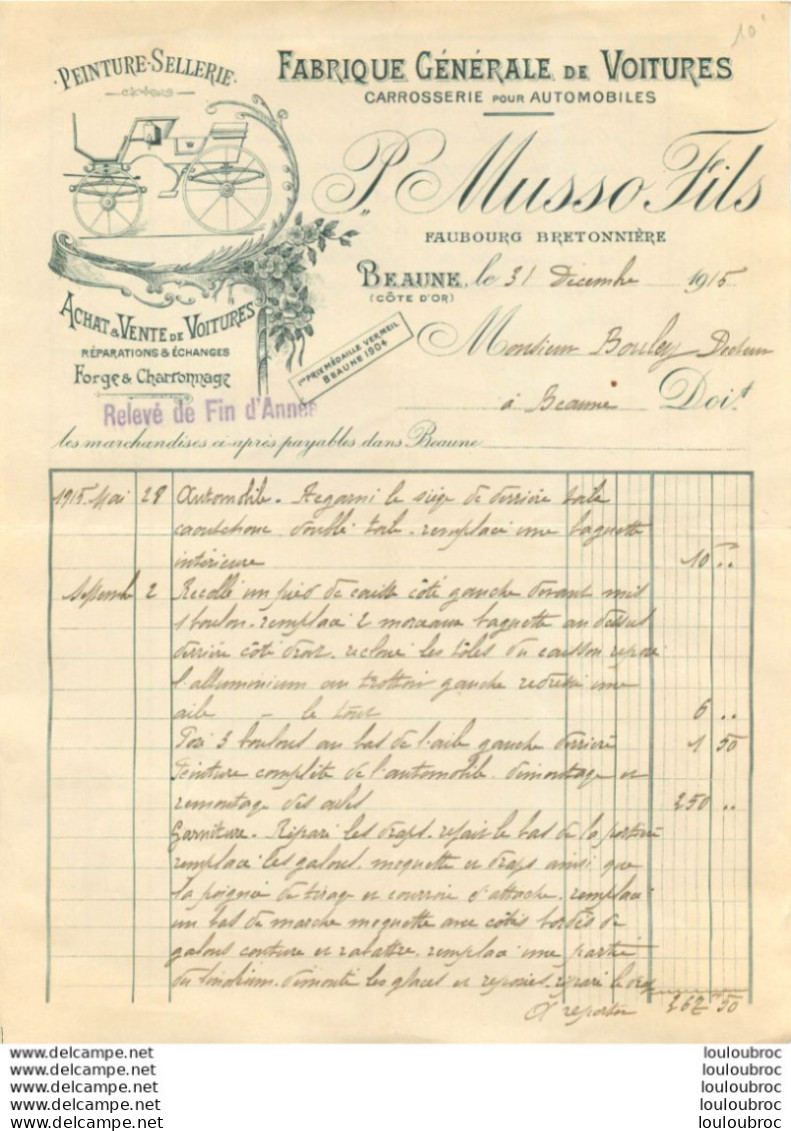 10'
·PEINTURE-SELLERIE·
FABRIQUE GÉNÉRALE DE VOITURES
CARROSSERIE POUR AUTOMOBILES
P. Musso Fils
FAUBOURG BRETONNIÈRE
BEAUNE, le 31 Décembre 1915
(CÔTE D'OR)
ACHAT & VENTE DE VOITURES
RÉPARATIONS & ÉCHANGES
Forge & Charronnage
1er PRIX MÉDAILLE VERMEIL
BEAUNE 1904
Monsieur Bouley Docteur
à Beaune Doit
Relevé de Fin d'Année
les marchandises ci-après payables dans Beaune
1915 Mai 28 Automobile. Regarni le siège de derrière toile
caoutchouc double toile. remplacé une baguette
intérieure 10 ..
Septembre 2 Recollé un pied de caisse côté gauche devant mis
1 boulon. remplacé 2 morceaux baguette au dessus
derrière côté droit. recloué les tôles du caisson reposé
l'alluminium au trottoir gauche redressé une
aile – le tout 6 ..
Posé 3 boulons au bas de l'aile gauche derrière 1 50
Peinture complète de l'automobile. démontage et
remontage des ailes 250 ..
Garniture. Réparé les draps. refait le bas de la portière
remplacé les galons. moquette et draps ainsi que
la poignée de tirage et courroie d'attache. remplacé
un bas de marche moquette avec côtés bordés de
galons couture et rabattre. remplacé une partie
du linoléum. démonté les glaces et reposées. réparé le drap
A reporter 267 50
delcampe.net
delcampe.net
delcampe.net
delcampe.net
delcampe.net
louloubroc
louloubroc
louloubroc
louloubroc
louloubroc